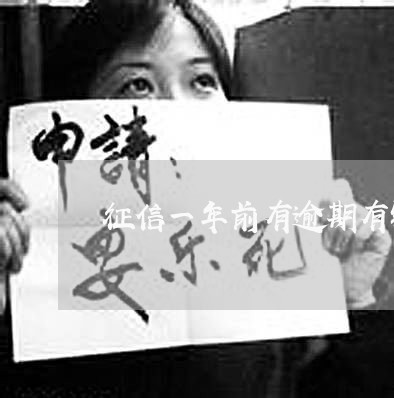 申請：
征信一年前有逾期有
安乐死